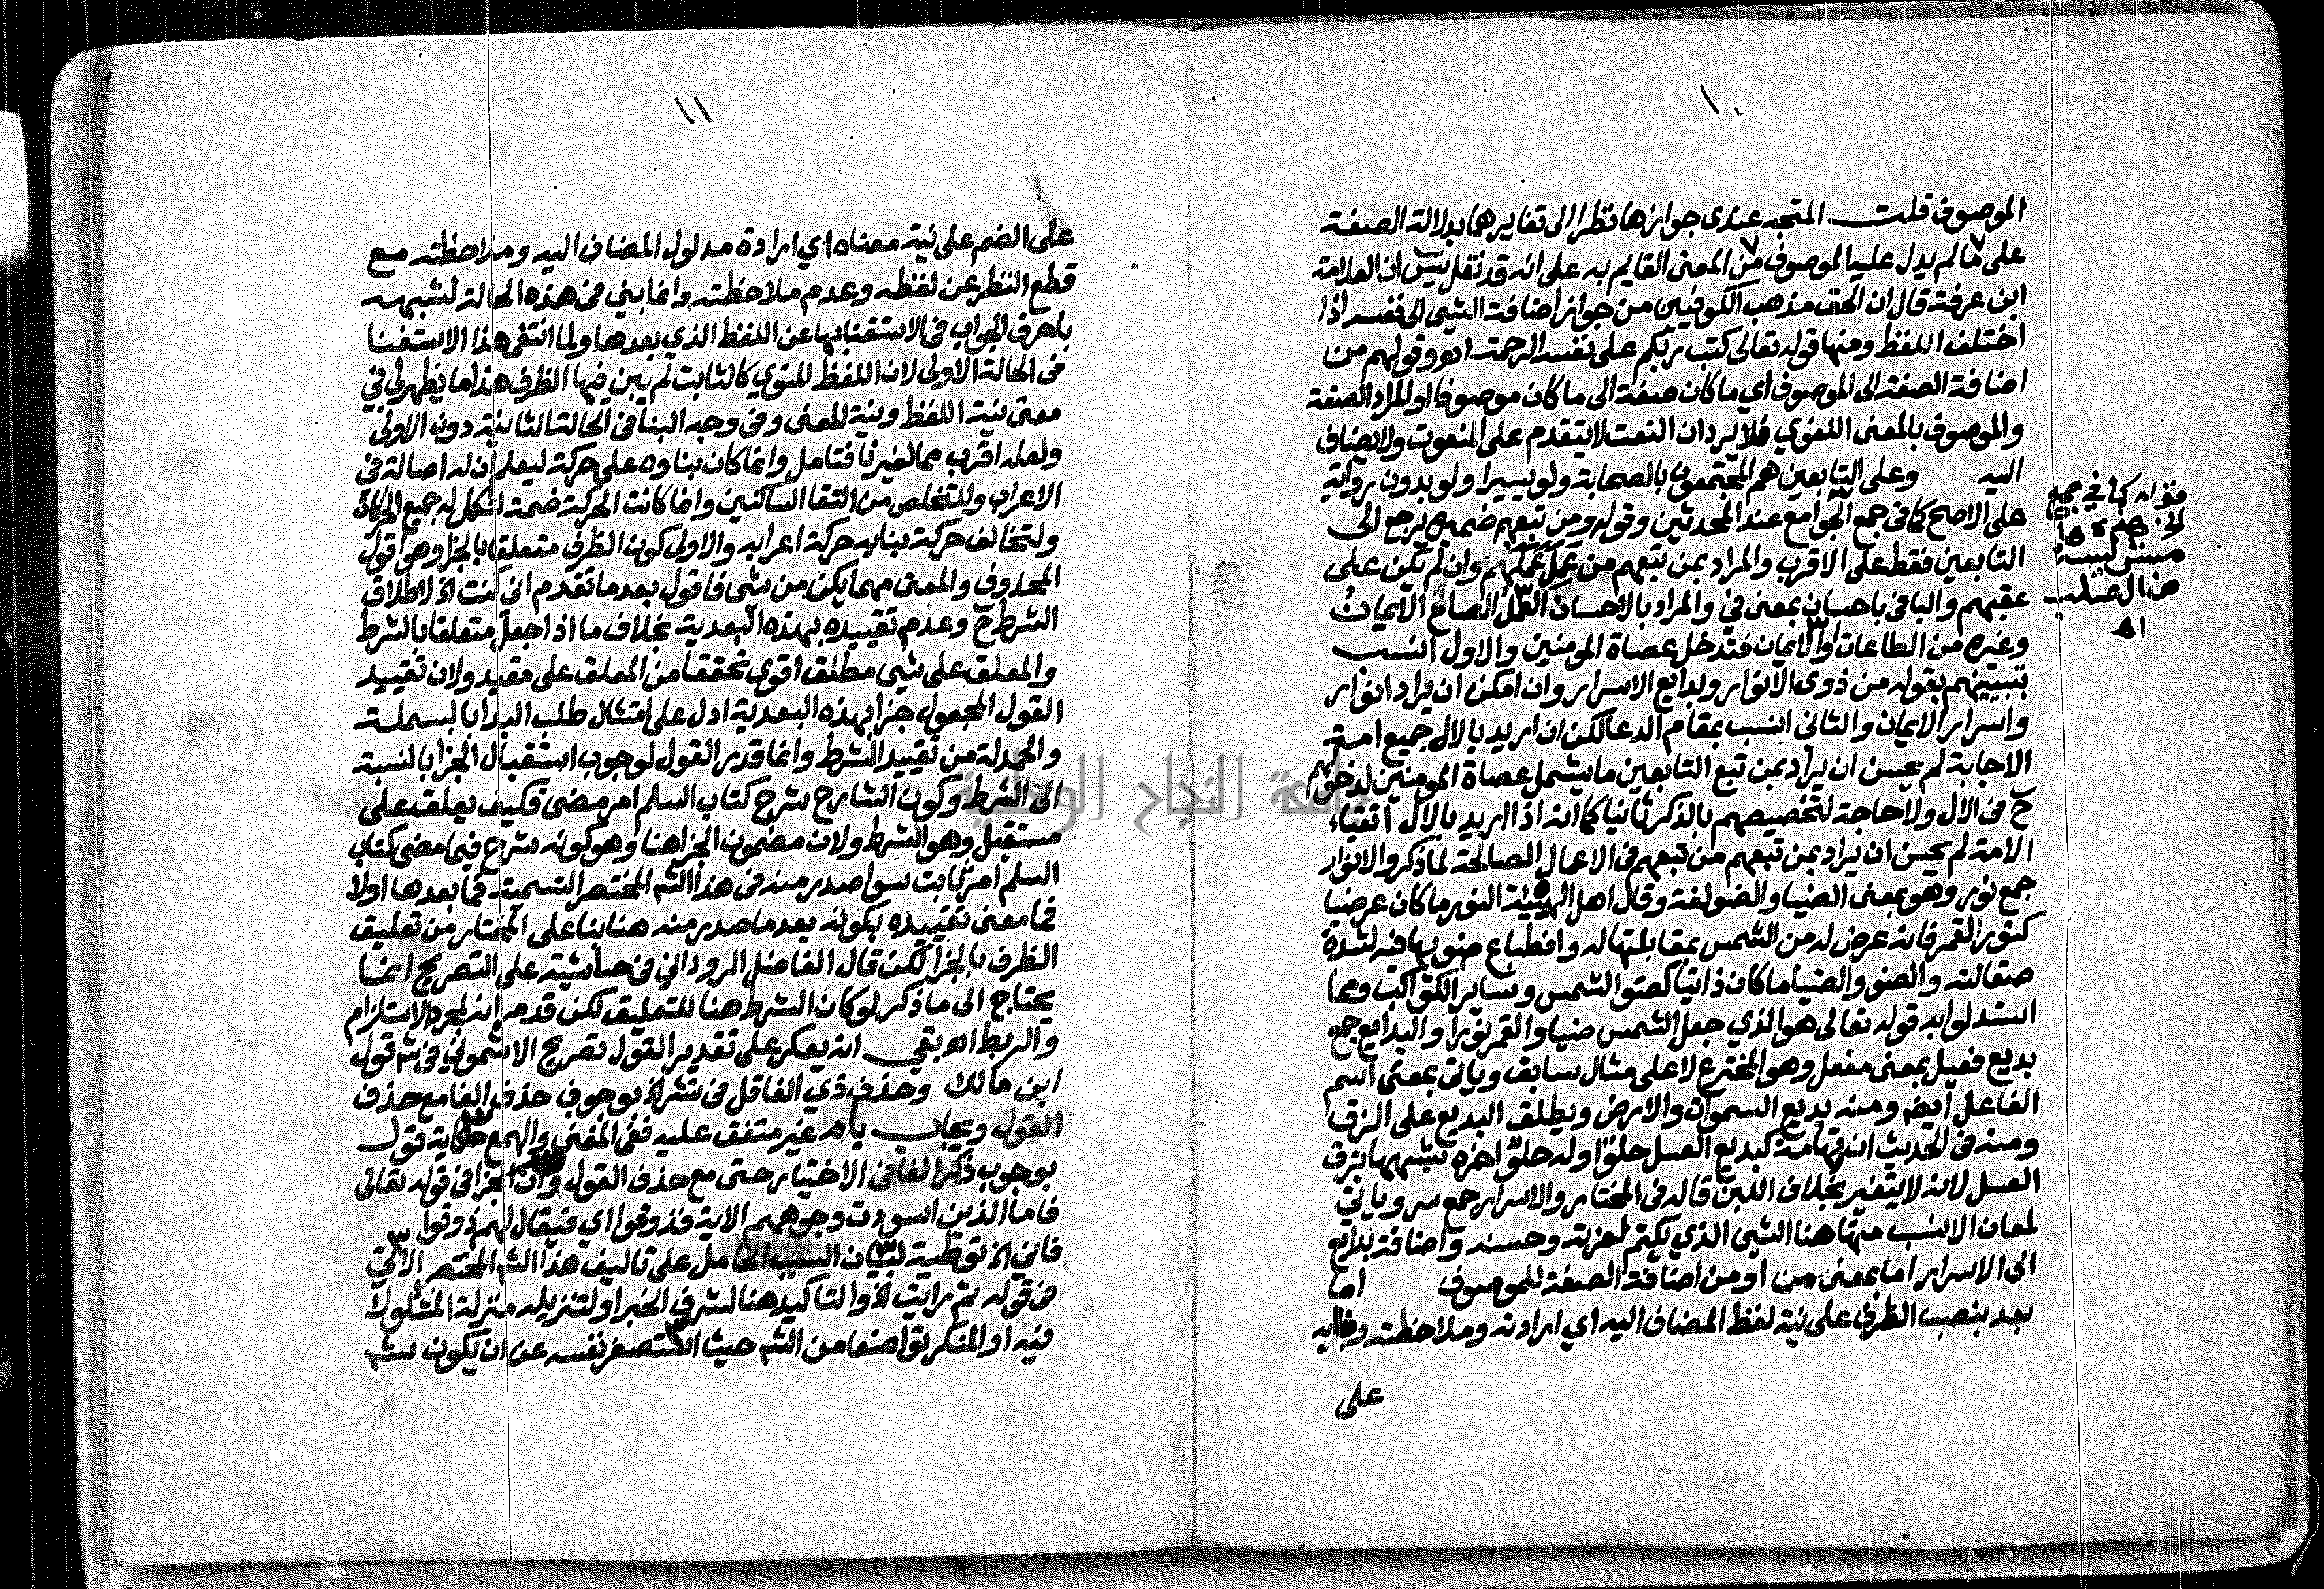 ١٠
الموصوف قلت المتجه عندى جوازها نظرا الى تغايرهما بدلالة الصفة
على ما لم يدل عليه الموصوف من المعنى القايم به على انه قد نقل يس ان العلامة
ابن عرفة قال ان الحق مذهب الكوفيين من جواز اضافة الشى الى نفسه اذا
اختلف اللفظ ومنها قوله تعالى كتب ربكم على نفسه الرحمة اه وقولهم من
اضافة الصفة الى الموصوف اي ما كان صفة الى ما كان موصوفا او المراد الصفة
والموصوف بالمعنى اللغوي فلا يرد ان النعت لا يتقدم على المنعوت ولا يضاف
اليه وعلى التابعين هم المجتمعون بالصحابة ولو يسيرا ولو بدون رواية
على الاصح كما فى جمع الجوامع عند المحدثين وقوله ومن تبعهم ضميره يرجع الى
التابعين فقط على الاقرب والمراد بمن تبعهم من عمل عملهم وان لم يكن على
عقبهم والبا فى باحسان بمعنى فى والمراد بالاحسان العمل الصالح الايمان
وغيره من الطاعات او الايمان فتدخل عصاة المومنين والاول انسب
بتبيينهم بقوله من ذوى الانوار وبدايع الاسرار وان امكن ان يراد انوار
واسرار الايمان والثانى انسب بمقام الدعا لكن ان اريد بالال جميع امة
الاجابة لم يحسن ان يراد بمن تبع التابعين ما يشمل عصاة المومنين لدخولهم
ح فى الال ولا حاجة لتخصيصهم بالذكر ثانيا كما انه اذا اريد بالال اتقياء
الامة لم يحسن ان يراد بمن تبعهم من تبعهم فى الاعمال الصالحة لما ذكر والانوار
جمع نور وهو بمعنى الضيا والضو لغة وقال اهل الهيئة النور ما كان عرضيا
كنور القمر فانه عرض له من الشمس بمقابلتها له وانطباع ضويها فيه لشدة
صقالته والضو والضيا ما كان ذاتيا كضو الشمس وساير الكواكب ومما
استدلوا به قوله تعالى هو الذي جعل الشمس ضيا والقمر نورا والبدايع جمع
بديع فعيل بمعنى مفعل وهو المخترع لا على مثال سابق وياتى بمعنى اسم
الفاعل ايضا ومنه بديع السموات والارض ويطلق البديع على الزق
ومنه فى الحديث ان تهامة كبديع العسل حلو اوله حلو اخره شبهها بزق
العسل لانه لا يتغير بخلاف اللبن قاله فى المختار والاسرار جمع سر وياتى
لمعان الانسب منها هنا الشى الذي يكتم لعزته وحسنه واضافة بدايع
الى الاسرار اما بمعنى من او من اضافة الصفة للموصوف اما
بعد بنصب الظرف على نية لفظ المضاف اليه اي ارادته وملاحظته وبنايه
على
قوله كما في جمع
اه
١١
على الضم على نية معناه اي ارادة مدلول المضاف اليه وملاحظته مع
قطع النظر عن لفظه وعدم ملاحظته وانما بني فى هذه الحالة لشبهه
باحرف الجواب فى الاستغنا بها عن اللفظ الذي بعدها ولما انتفى هذا الاستغنا
فى الحالة الاولى لان اللفظ المنوي كالثابت لم يبن فيها الظرف هذا ما يظهر لي في
معنى نية اللفظ ونية المعنى وفى وجه البنا فى الحالة الثانية دون الاولى
ولعله اقرب مما لغيرنا فتامل وانما كان بناوه على حركة ليعلم ان له اصالة فى
الاعراب وللتخلص من التقا الساكنين وانما كانت الحركة ضمة لتكمل له جميع الحركات
ولتخالف حركة بنايه حركة اعرابه والاولى كون الظرف متعلقا بالجزا وهو اقول
المحذوف والمعنى مهما يكن من شى فاقول بعد ما تقدم انى كنت اذ لاطلاق
الشرط ح وعدم تقييده بهذه البعدية بخلاف ما اذا جعل متعلقا بالشرط
والمعلق على شي مطلق اقوى تحققا من المعلق على مقيد ولان تقييد
القول المجعول جزا بهذه البعدية ادل على امتثال طلب البدا بالبسملة
والحمدلة من تقييد الشرط وانما قدر القول لوجوب استقبال الجزا بالنسبة
الى الشرط وكون الشارح شرح كتاب السلم امر مضى فكيف يعلق على
مستقبل وهو الشرط ولان مضمون الجزا هنا وهو كونه شرح فيما مضى كتاب
السلم امر ثابت سوا صدر منه فى هذا الش المختصر التسمية فما بعدها اولا
فما معنى تقييده بكونه بعد ما صدر منه هنا بنا على المختار من تعليق
الظرف بالجزا لكن قال الفاضل الروداني فى حاشيته على التصريح انما
يحتاج الى ما ذكر لو كان الشرط هنا للتعليق لكن قد مر انه لمجرد الاستلزام
والربط اه بقي انه يعكر على تقدير القول تصريح الاشموني فى ش قول
ابن مالك وحذف ذي الفا قل فى نثر اذ بوجوب حذف الفا مع حذف
القول ويجاب بانه غير متفق عليه ففى المغني والهمع حكاية قول
بوجوب ذكر الفا فى الاختيار حتى مع حذف القول وان الجزا فى قوله تعالى
فاما الذين اسودت وجوههم الاية فذوقوا اي فيقال لهم ذوقوا
فاني الخ توطية لبيان السبب الحامل على تاليف هذا الش المختصر الاتي
فى قوله ثم رايت الخ والتاكيد هنا لشرف الخبر او لتنزيله منزلة المشكوك
فيه او المنكر تواضعا من الش حيث استصغر نفسه عن ان يكون ش